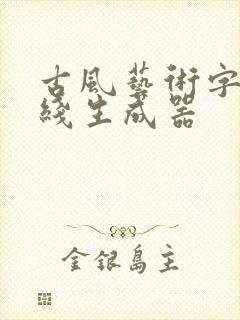 古風藝術字
綫生成器
金銀島主